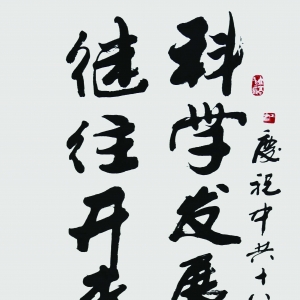 慶祝中共十八
科学发展
继往开来